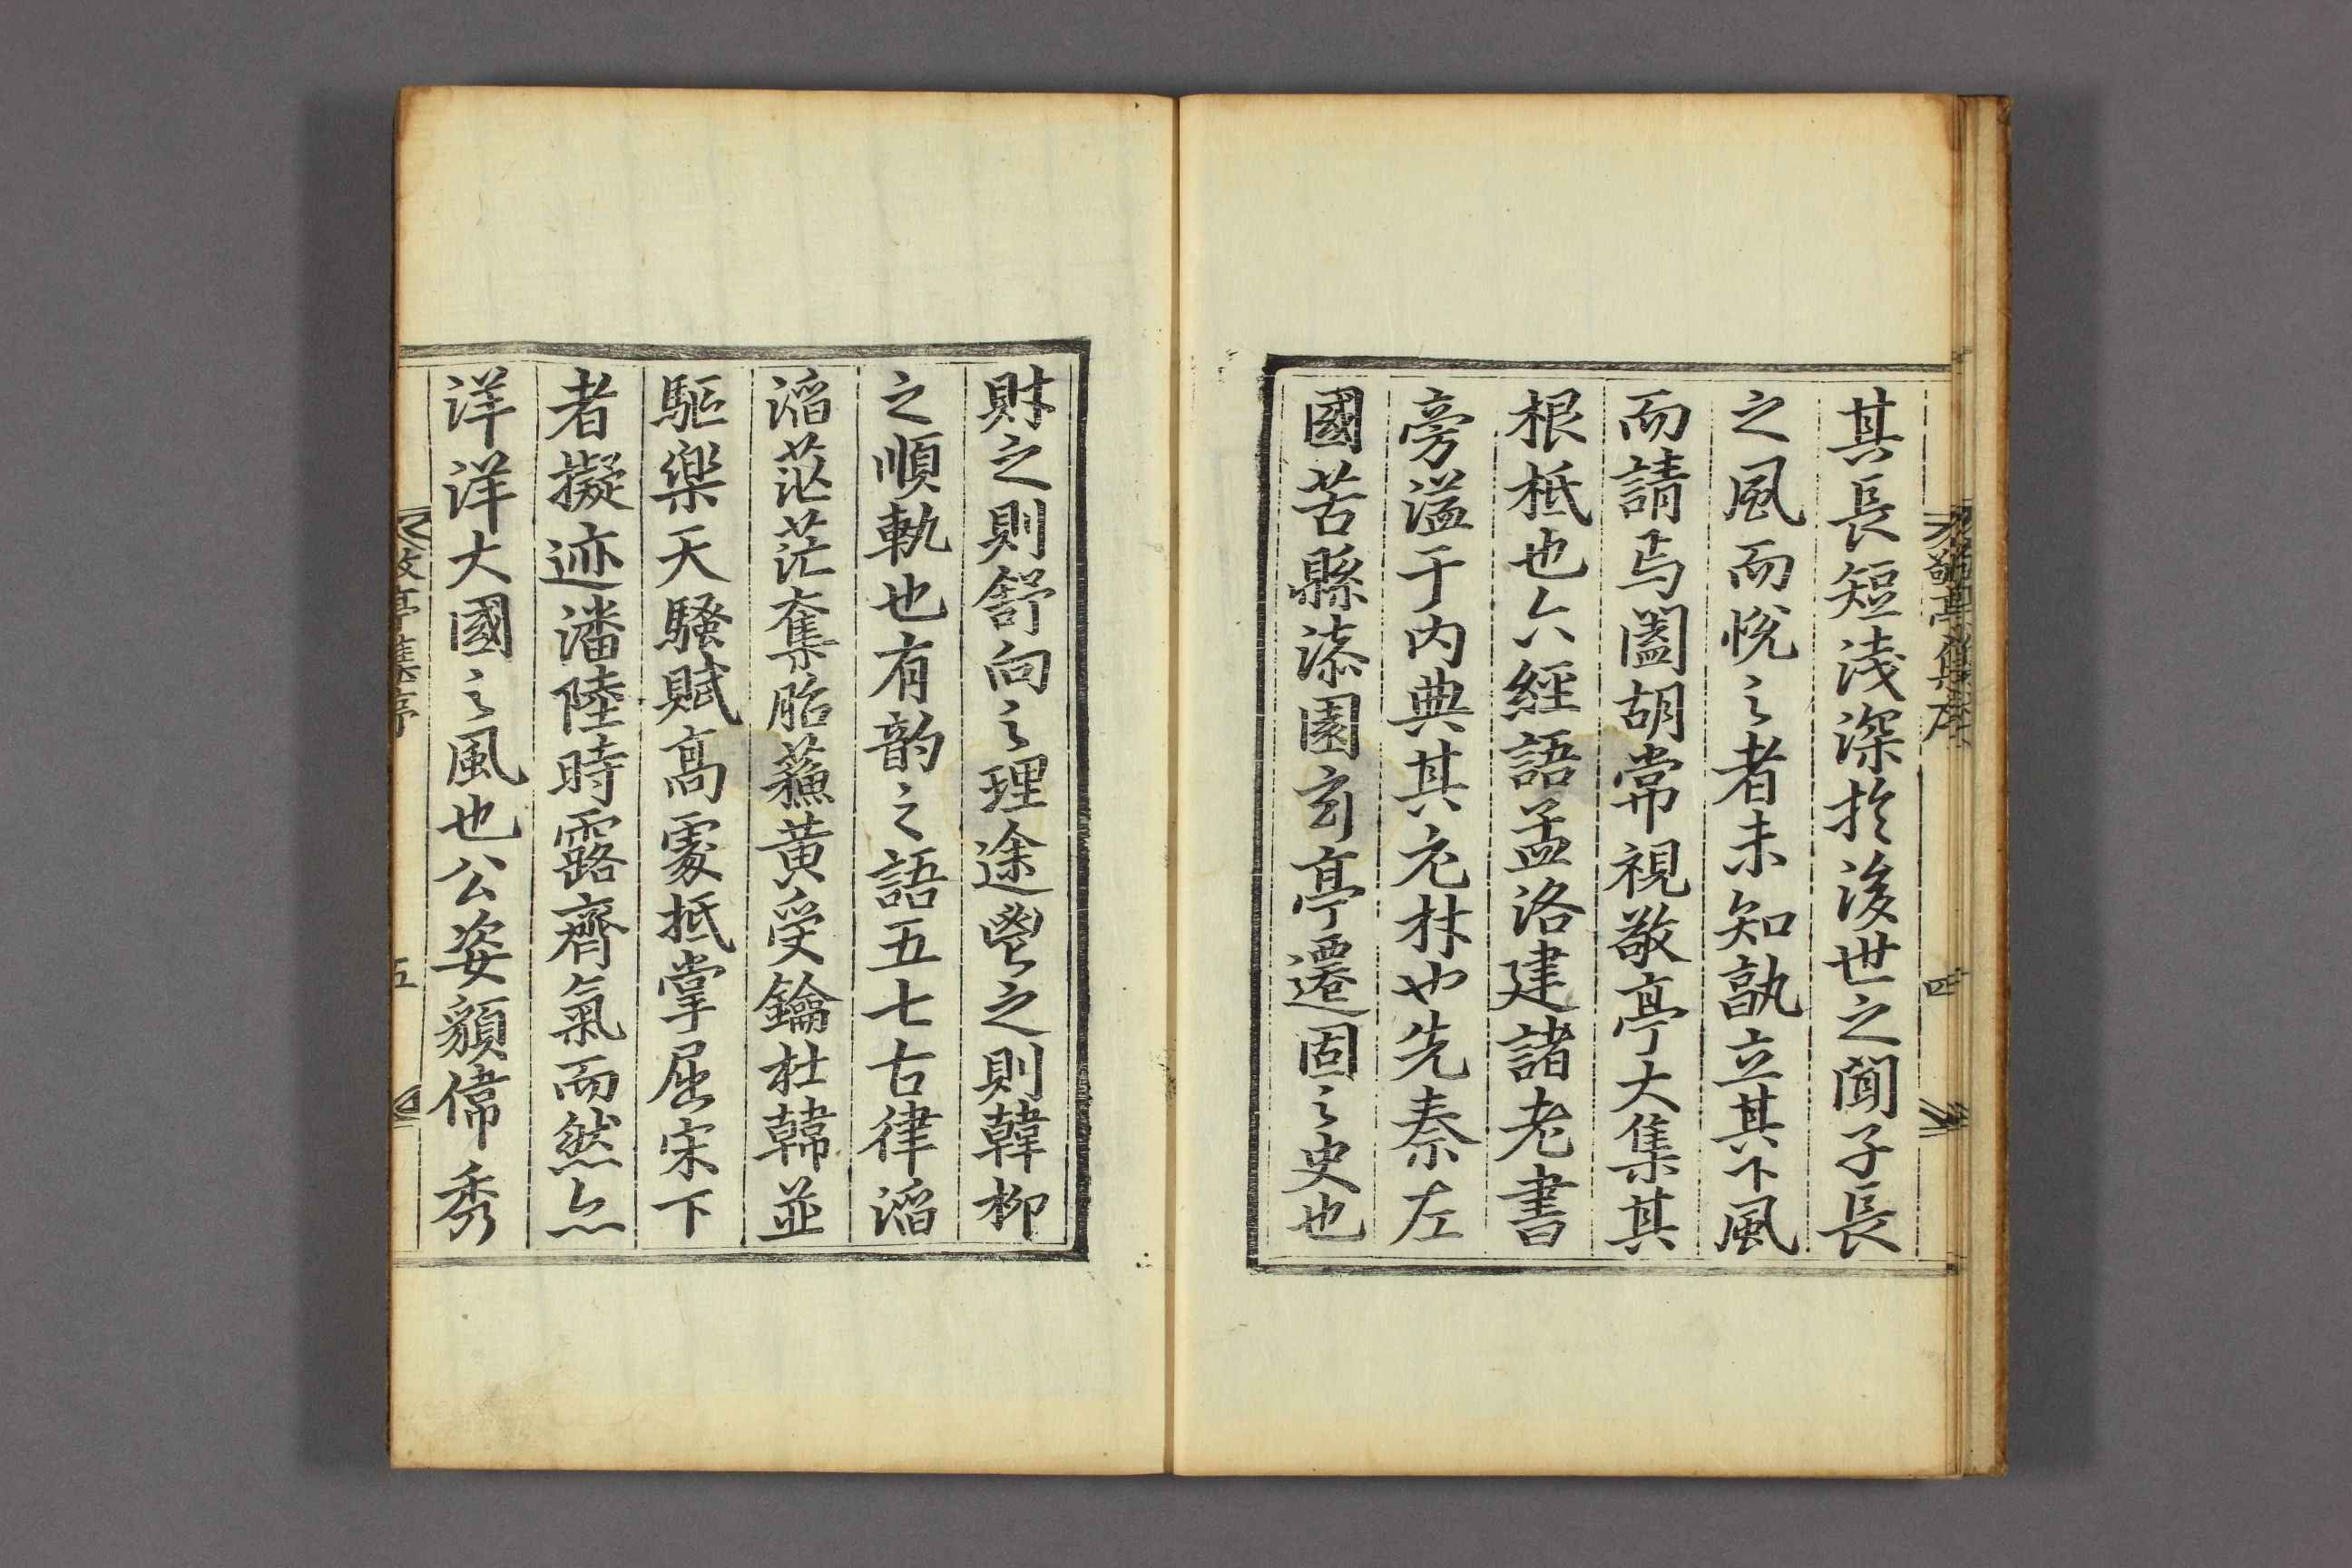 敬亭集序
四
其長短淺深於後世之聞子長
之風而悅之者未知孰立其下風
而請与闔胡常視敬亭大集其
根柢也六經語孟洛建諸老書
旁溢于內典其充材也先秦左
國苦縣漆園玄亭遷固之史也
財之則舒向之理途鬯之則韓柳
之順軌也有韵之語五七古律滔
滔茫茫奪胎蘓黃受鑰杜韓並
駈樂天騷賦高處抵掌屈宋下
者擬迹潘陸時露齊氣而然亦
洋洋大國之風也公姿顏偉秀
敬亭集序
五